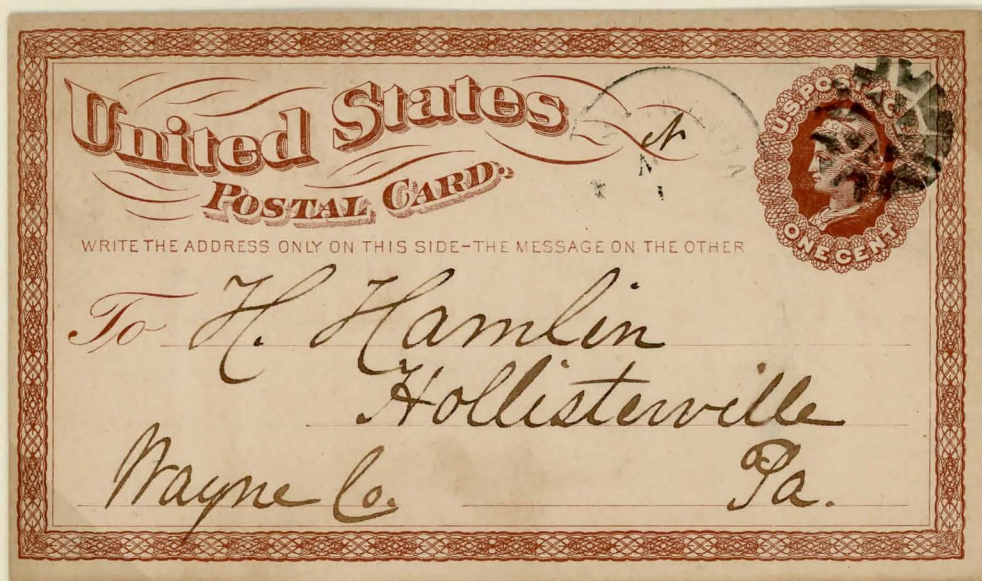 United States
POSTAL CARD.
U.S. POSTAGE
ONE CENT
WRITE THE ADDRESS ONLY ON THIS SIDE-THE MESSAGE ON THE OTHER
To H. Hamlin
Hollisterville
Wayne Co. Pa.